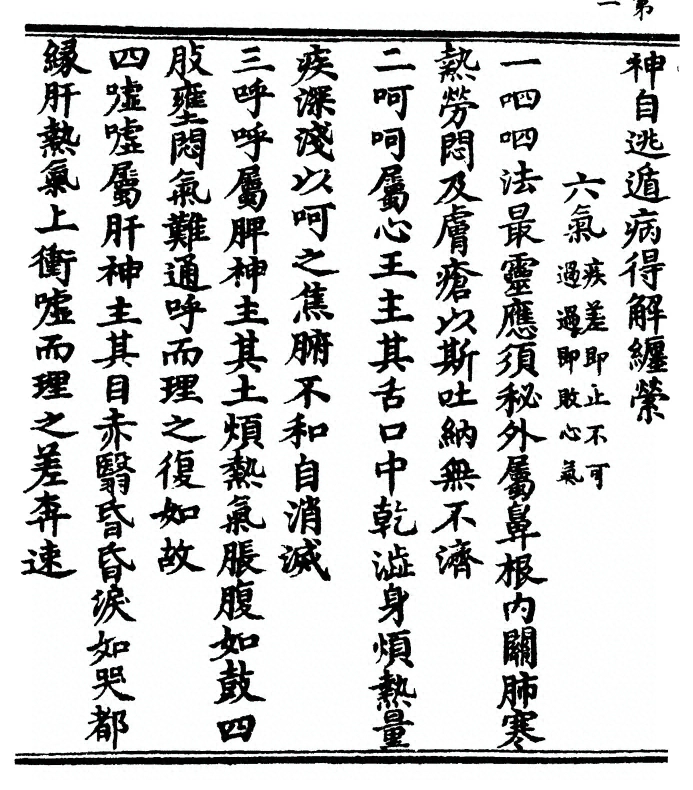 第一
神自逃遁病得解纏縈
六氣 疾差即止不可
過過即敗心氣
一呬呬法最靈應須秘外屬鼻根内關肺寒
熱勞悶及膚瘡以斯吐納無不濟
二呵呵屬心王主其舌口中乾澁身煩熱量
疾深淺以呵之焦腑不和自消滅
三呼呼屬脾神主其土煩熱氣脹腹如鼓四
肢壅悶氣難通呼而理之復如故
四噓噓屬肝神主其目赤翳昏昏淚如哭都
緣肝熱氣上衝噓而理之差奔速